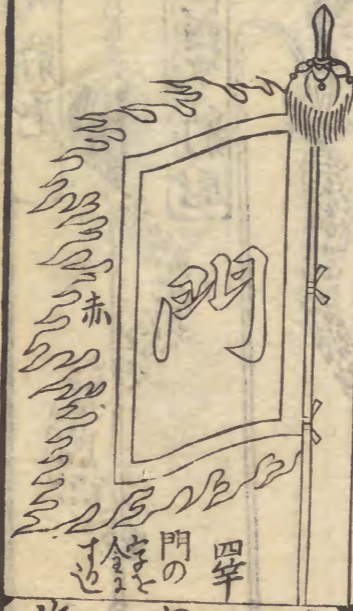 門
赤
四竿
門の
字を
金に
すり込